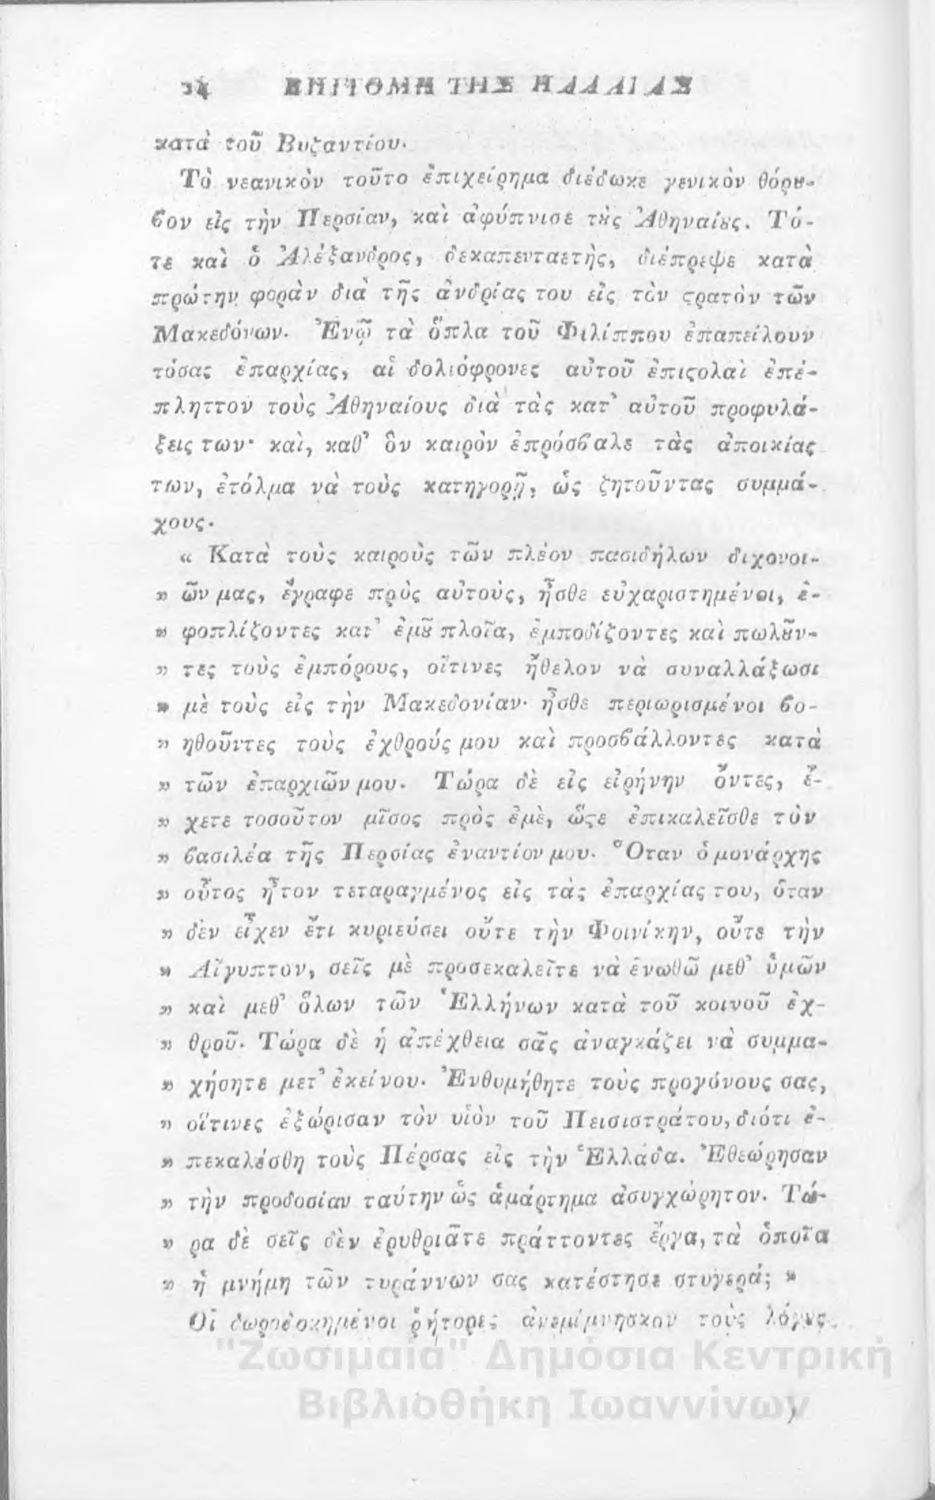 24 ΕΠΙΤΟΜΗ ΤΗΣ ΠΑΛΑΙΑΣ
κατὰ τοῦ Βυζαντίου.
Τὸ νεανικὸν τοῦτο ἐπιχείρημα διέδωκε γενικὸν θόρȣ-
ϐον εἰς τὴν Περσίαν, καὶ ἀφύπνισε τȣ̀ς Ἀθηναίȣς. Τό-
τε καὶ ὁ Ἀλέξανδρος, δεκαπενταετὴς, διέπρεψε κατὰ
πρώτην φορὰν διὰ τῆς ἀνδρίας του εἰς τὸν ϛρατὸν τῶν
Μακεδόνων. Ἐνῷ τὰ ὅπλα τοῦ Φιλίππου ἐπαπείλουν
τόσας ἐπαρχίας, αἱ δολιόφρονες αὐτοῦ ἐπιϛολαὶ ἐπέ-
πληττον τοὺς Ἀθηναίους διὰ τὰς κατ' αὐτοῦ προφυλά-
ξεις των· καὶ, καθ' ὃν καιρὸν ἐπρόσϐαλε τὰς ἀποικίας
των, ἐτόλμα νὰ τοὺς κατηγορῇ, ὡς ζητοῦντας συμμά-
χους.
« Κατὰ τοὺς καιροὺς τῶν πλέον πασιδήλων διχονοι-
» ῶν μας, ἔγραφε πρὸς αὐτοὺς, ἦσθε εὐχαριστημένοι, ἐ-
» φοπλίζοντες κατ' ἐμȣ͂ πλοῖα, ἐμποδίζοντες καὶ πωλȣ͂ν-
» τες τοὺς ἐμπόρους, οἵτινες ἤθελον νὰ συναλλάξωσι
» μὲ τοὺς εἰς τὴν Μακεδονίαν· ἦσθε περιωρισμένοι ϐο-
» ηθοῦντες τοὺς ἐχθρούς μου καὶ προσϐάλλοντες κατὰ
» τῶν ἐπαρχιῶν μου. Τώρα δὲ εἰς εἰρήνην ὄντες, ἔ-
» χετε τοσοῦτον μῖσος πρὸς ἐμὲ, ὥϛε ἐπικαλεῖσθε τὸν
» ϐασιλέα τῆς Περσίας ἐναντίον μου. Ὅταν ὁ μονάρχης
» οὗτος ἦτον τεταραγμένος εἰς τὰς ἐπαρχίας του, ὅταν
» δὲν εἶχεν ἔτι κυριεύσει οὔτε τὴν Φοινίκην, οὔτε τὴν
» Αἴγυπτον, σεῖς μὲ προσεκαλεῖτε νὰ ἑνωθῶ μεθ' ὑμῶν
» καὶ μεθ' ὅλων τῶν Ἑλλήνων κατὰ τοῦ κοινοῦ ἐχ-
» θροῦ. Τώρα δὲ ἡ ἀπέχθεια σᾶς ἀναγκάζει νὰ συμμα-
» χήσητε μετ' ἐκείνου. Ἐνθυμήθητε τοὺς προγόνους σας,
» οἵτινες ἐξώρισαν τὸν υἱὸν τοῦ Πεισιστράτου, διότι ἐ-
» πεκαλέσθη τοὺς Πέρσας εἰς τὴν Ἑλλάδα. Ἐθεώρησαν
» τὴν προδοσίαν ταύτην ὡς ἁμάρτημα ἀσυγχώρητον. Τώ-
» ρα δὲ σεῖς δὲν ἐρυθριᾶτε πράττοντες ἔργα, τὰ ὁποῖα
» ἡ μνήμη τῶν τυράννων σας κατέστησε στυγερά; »
Οἱ δωροδοκημένοι ῥήτορες ἀνεμίμνησκον τοὺς λόγȣς
"Ζωσιμαία" Δημόσια Κεντρική
Βιβλιοθήκη Ιωαννίνων